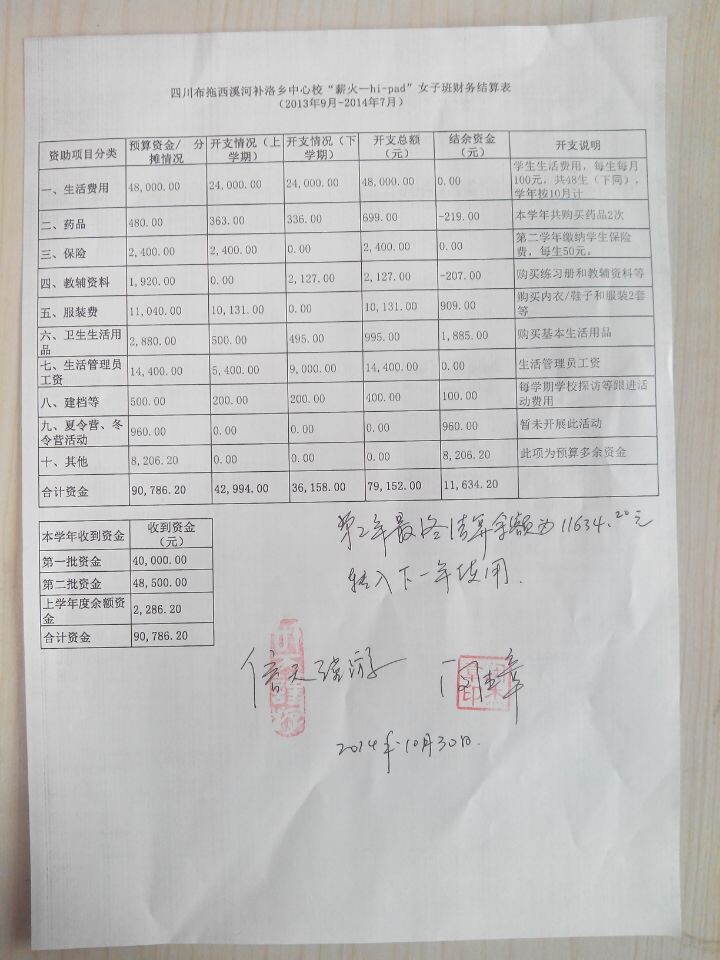 四川布拖西溪河补洛乡中心校“薪火—hi-pad”女子班财务结算表
(2013年9月-2014年7月)
资助项目分类 预算资金/ 分摊情况 开支情况(上学期) 开支情况(下学期) 开支总额(元) 结余资金(元) 开支说明
一、生活费用 48,000.00 24,000.00 24,000.00 48,000.00 0.00 学生生活费用，每生每月100元，共48生(下同)，学年按10月计
二、药品 480.00 363.00 336.00 699.00 -219.00 本学年共购买药品2次
三、保险 2,400.00 2,400.00 0.00 2,400.00 0.00 第二学年缴纳学生保险费，每生50元。
四、教辅资料 1,920.00 0.00 2,127.00 2,127.00 -207.00 购买练习册和教辅资料等
五、服装费 11,040.00 10,131.00 0.00 10,131.00 909.00 购买内衣/鞋子和服装2套等
六、卫生生活用品 2,880.00 500.00 495.00 995.00 1,885.00 购买基本生活用品
七、生活管理员工资 14,400.00 5,400.00 9,000.00 14,400.00 0.00 生活管理员工资
八、建档等 500.00 200.00 200.00 400.00 100.00 每学期学校探访等跟进活动费用
九、夏令营、冬令营活动 960.00 0.00 0.00 0.00 960.00 暂未开展此活动
十、其他 8,206.20 0.00 0.00 0.00 8,206.20 此项为预算多余资金
合计资金 90,786.20 42,994.00 36,158.00 79,152.00 11,634.20
本学年收到资金 收到资金(元)
第一批资金 40,000.00
第二批资金 48,500.00
上学年度余额资金 2,286.20
合计资金 90,786.20
第2年最终结算余额为11634.20元
转入下一年使用.
2014年10月30日.